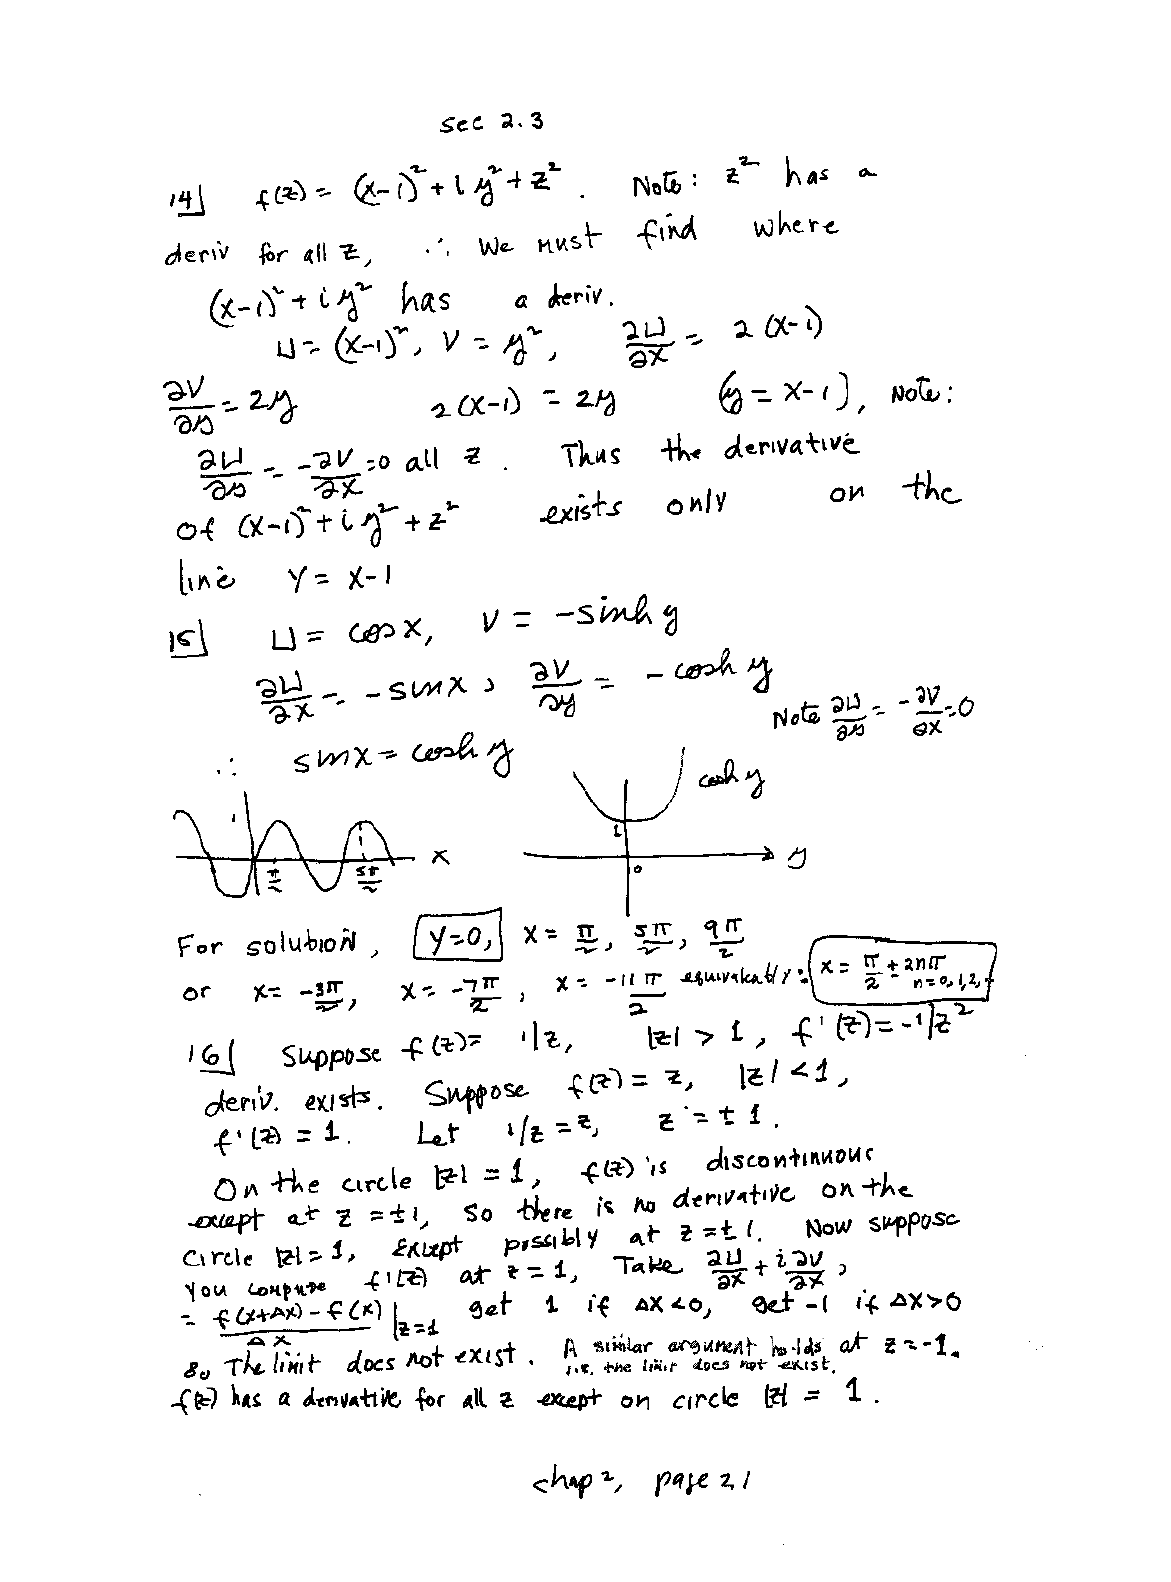 sec 2.3
14] f(z) = (x-1)² + i y² + z². Note: z² has a
deriv for all z, ∴ We must find where
(x-1)² + i y² has a deriv.
u = (x-1)², v = y², ∂u/∂x = 2(x-1)
∂v/∂y = 2y 2(x-1) = 2y (y = x-1), Note:
∂u/∂y = -∂v/∂x = 0 all z. Thus the derivative
of (x-1)² + i y² + z² exists only on the
line y = x-1
15] u = cos x, v = -sinh y
∂u/∂x = -sin x, ∂v/∂y = -cosh y
Note ∂u/∂y = -∂v/∂x = 0
∴ sin x = cosh y
cosh y
1
1
x
π/2
5π/2
0
y
For solution, y=0, x = π/2, 5π/2, 9π/2
or x = -3π/2, x = -7π/2, x = -11π/2 equivalently: x = π/2 ± 2nπ
n = 0,1,2,
16] Suppose f(z) = 1/z, |z| > 1, f'(z) = -1/z²
deriv. exists. Suppose f(z) = z, |z| < 1,
f'(z) = 1. Let 1/z = z, z = ± 1.
On the circle |z| = 1, f(z) is discontinuous
except at z = ±1, so there is no derivative on the
circle |z| = 1, Except possibly at z = ±1. Now suppose
you compute f'(z) at z = 1, Take ∂u/∂x + i ∂v/∂x,
= f(x+Δx) - f(x)/Δx |z=1 get 1 if Δx<0, get -1 if Δx>0
So The limit does not exist. A similar argument holds at z = -1.
i.e. the limit does not exist.
f(z) has a derivative for all z except on circle |z| = 1.
chap 2, page 21